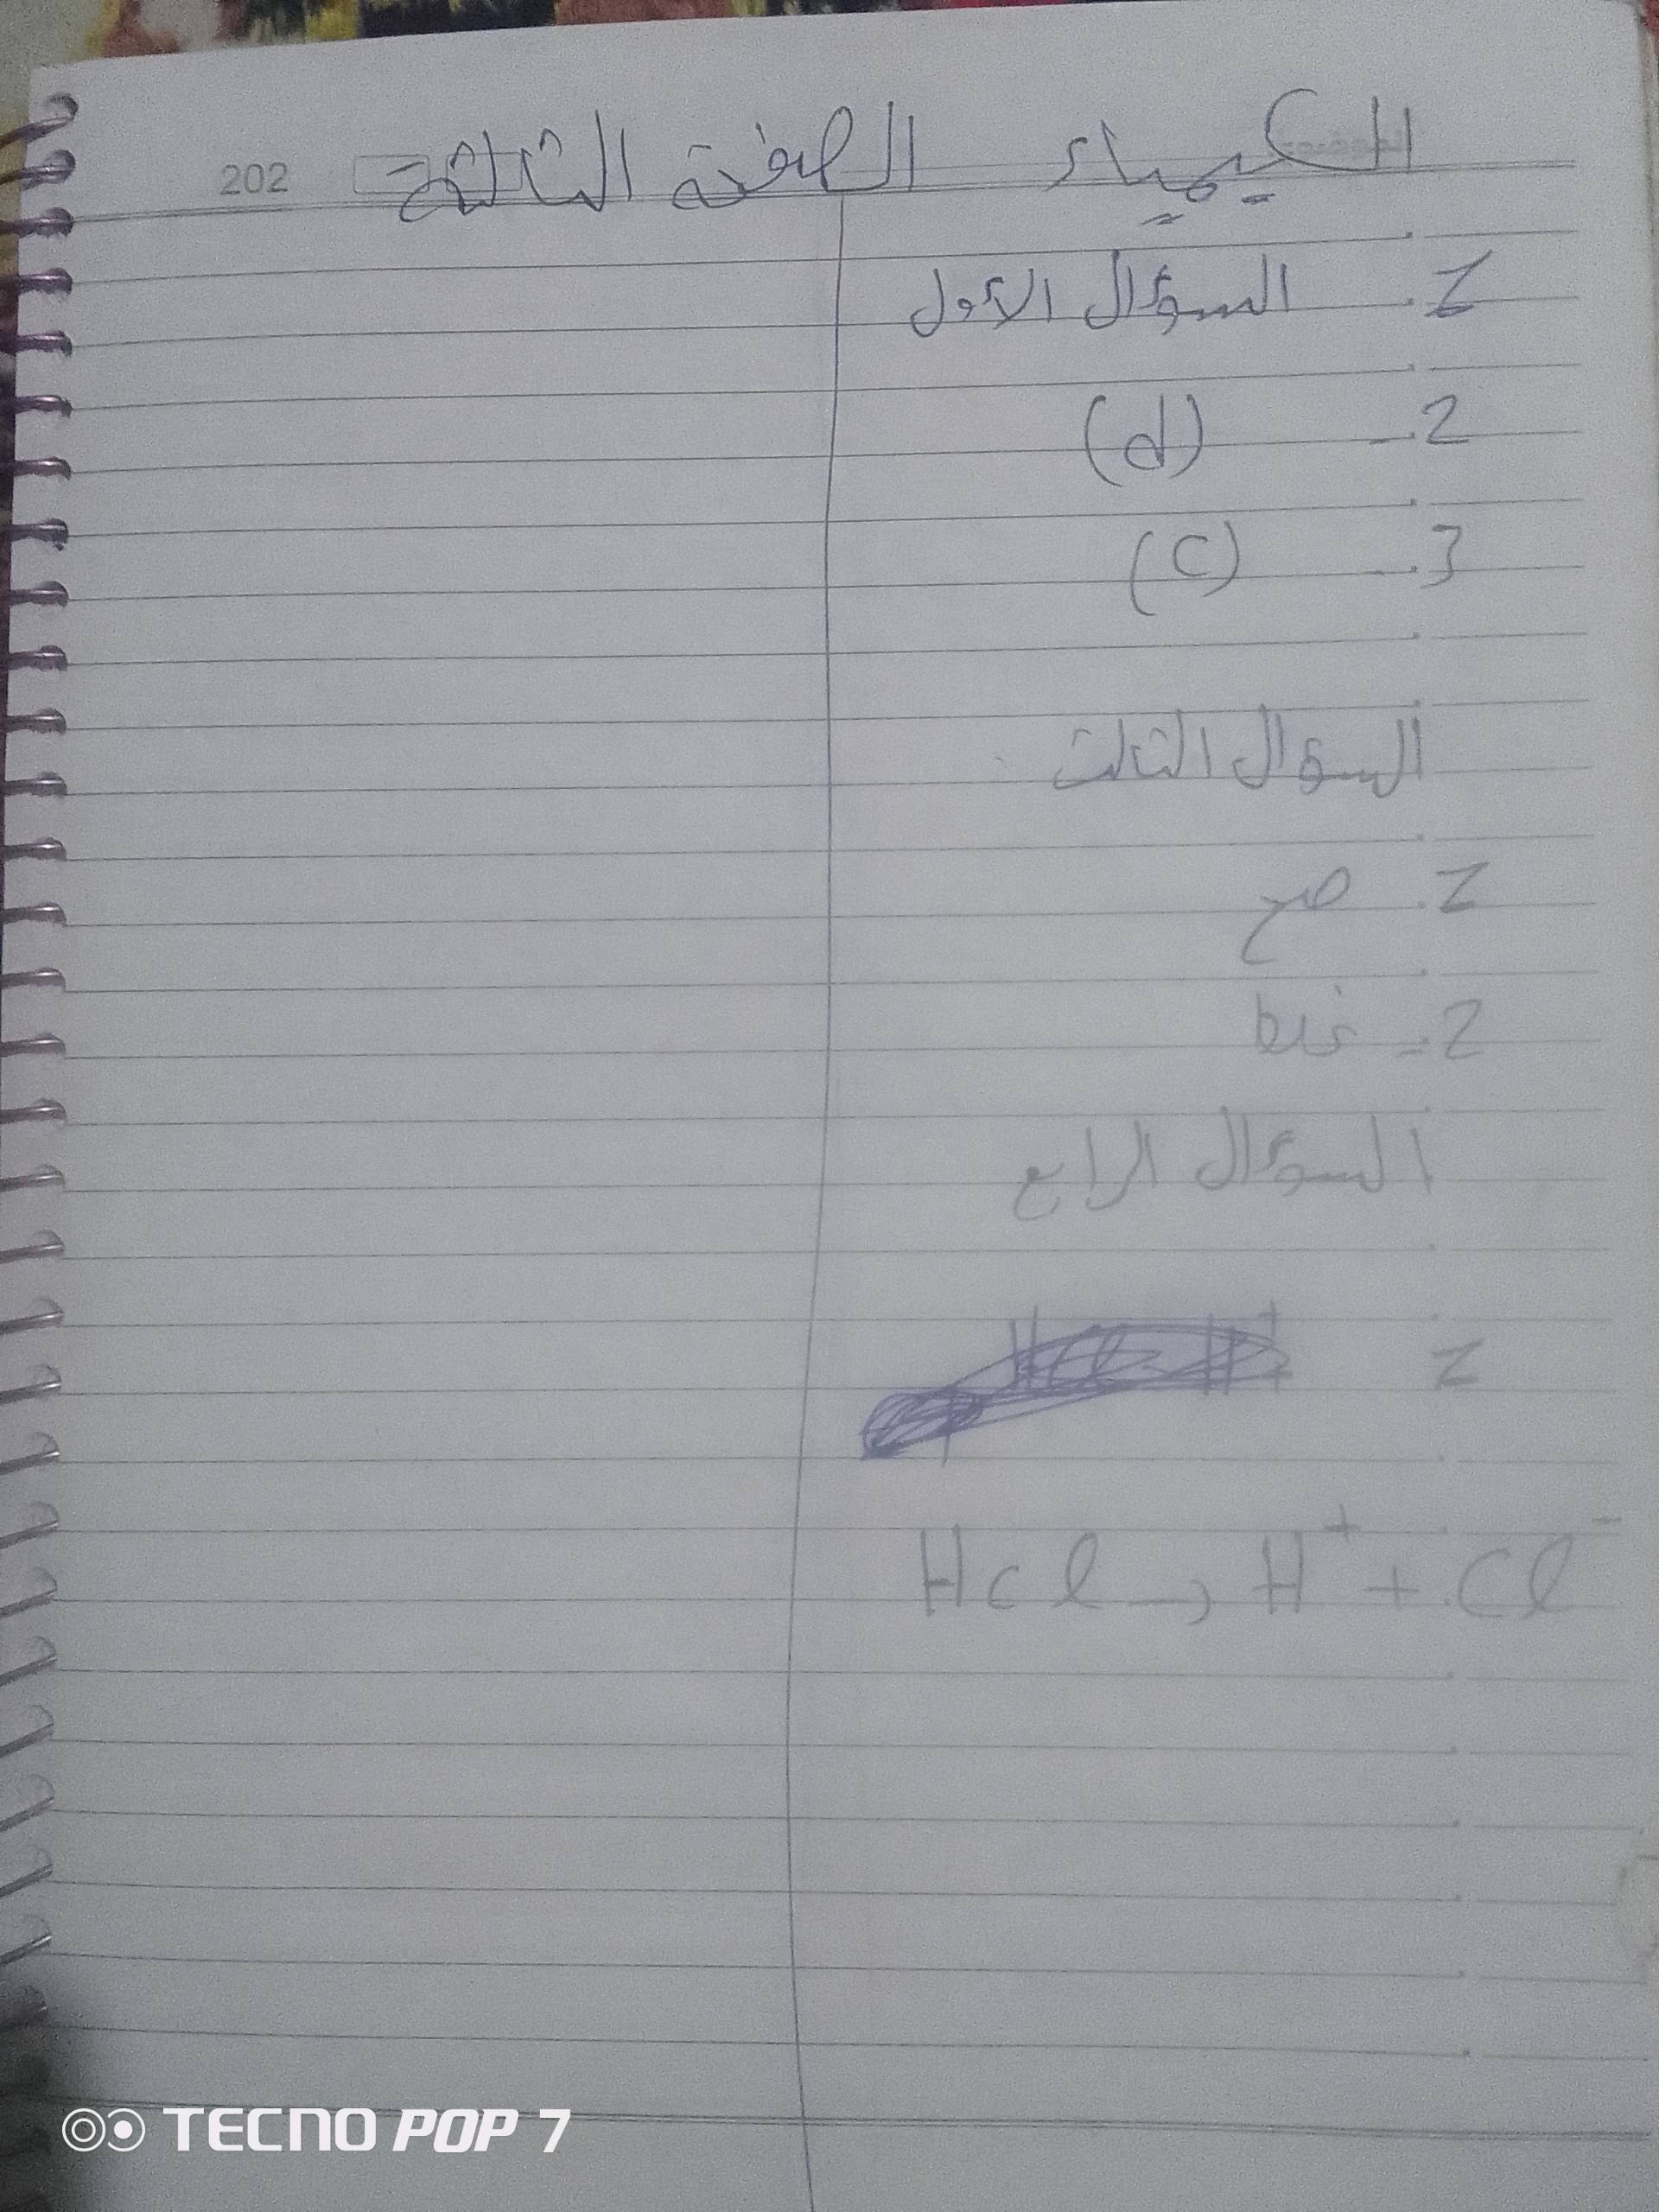 الكيمياء الصفحة الثالثة 202
1. السؤال الأول
2. (d)
3. (c)
السؤال الثالث
1. صح
2- خطا
السؤال الرابع
1
HCl → H⁺ + Cl⁻
TECNO POP 7